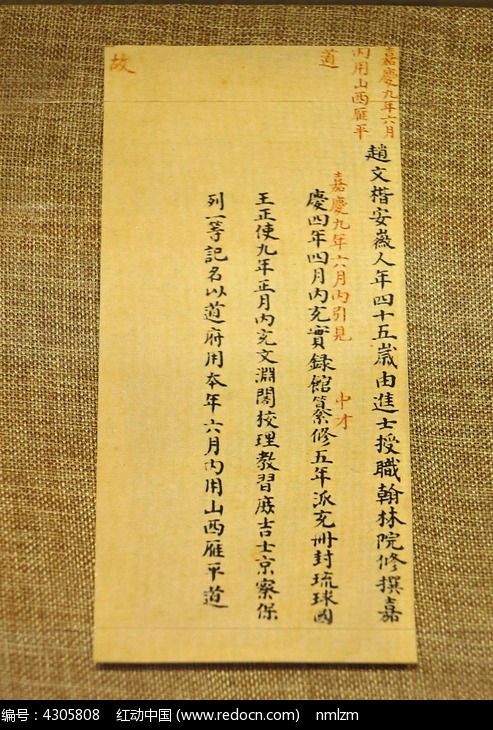 嘉慶九年六月
內用山西雁平
道
故
趙文楷安徽人年四十五歲由進士授職翰林院修撰嘉
嘉慶九年六月內引見 中才
慶四年四月內充實錄館纂修五年派充冊封琉球國
王正使九年正月內充文淵閣校理教習庶吉士京察保
列一等記名以道府用本年六月內用山西雁平道
编号：4305808 红动中国 (www.redocn.com) nmlzm